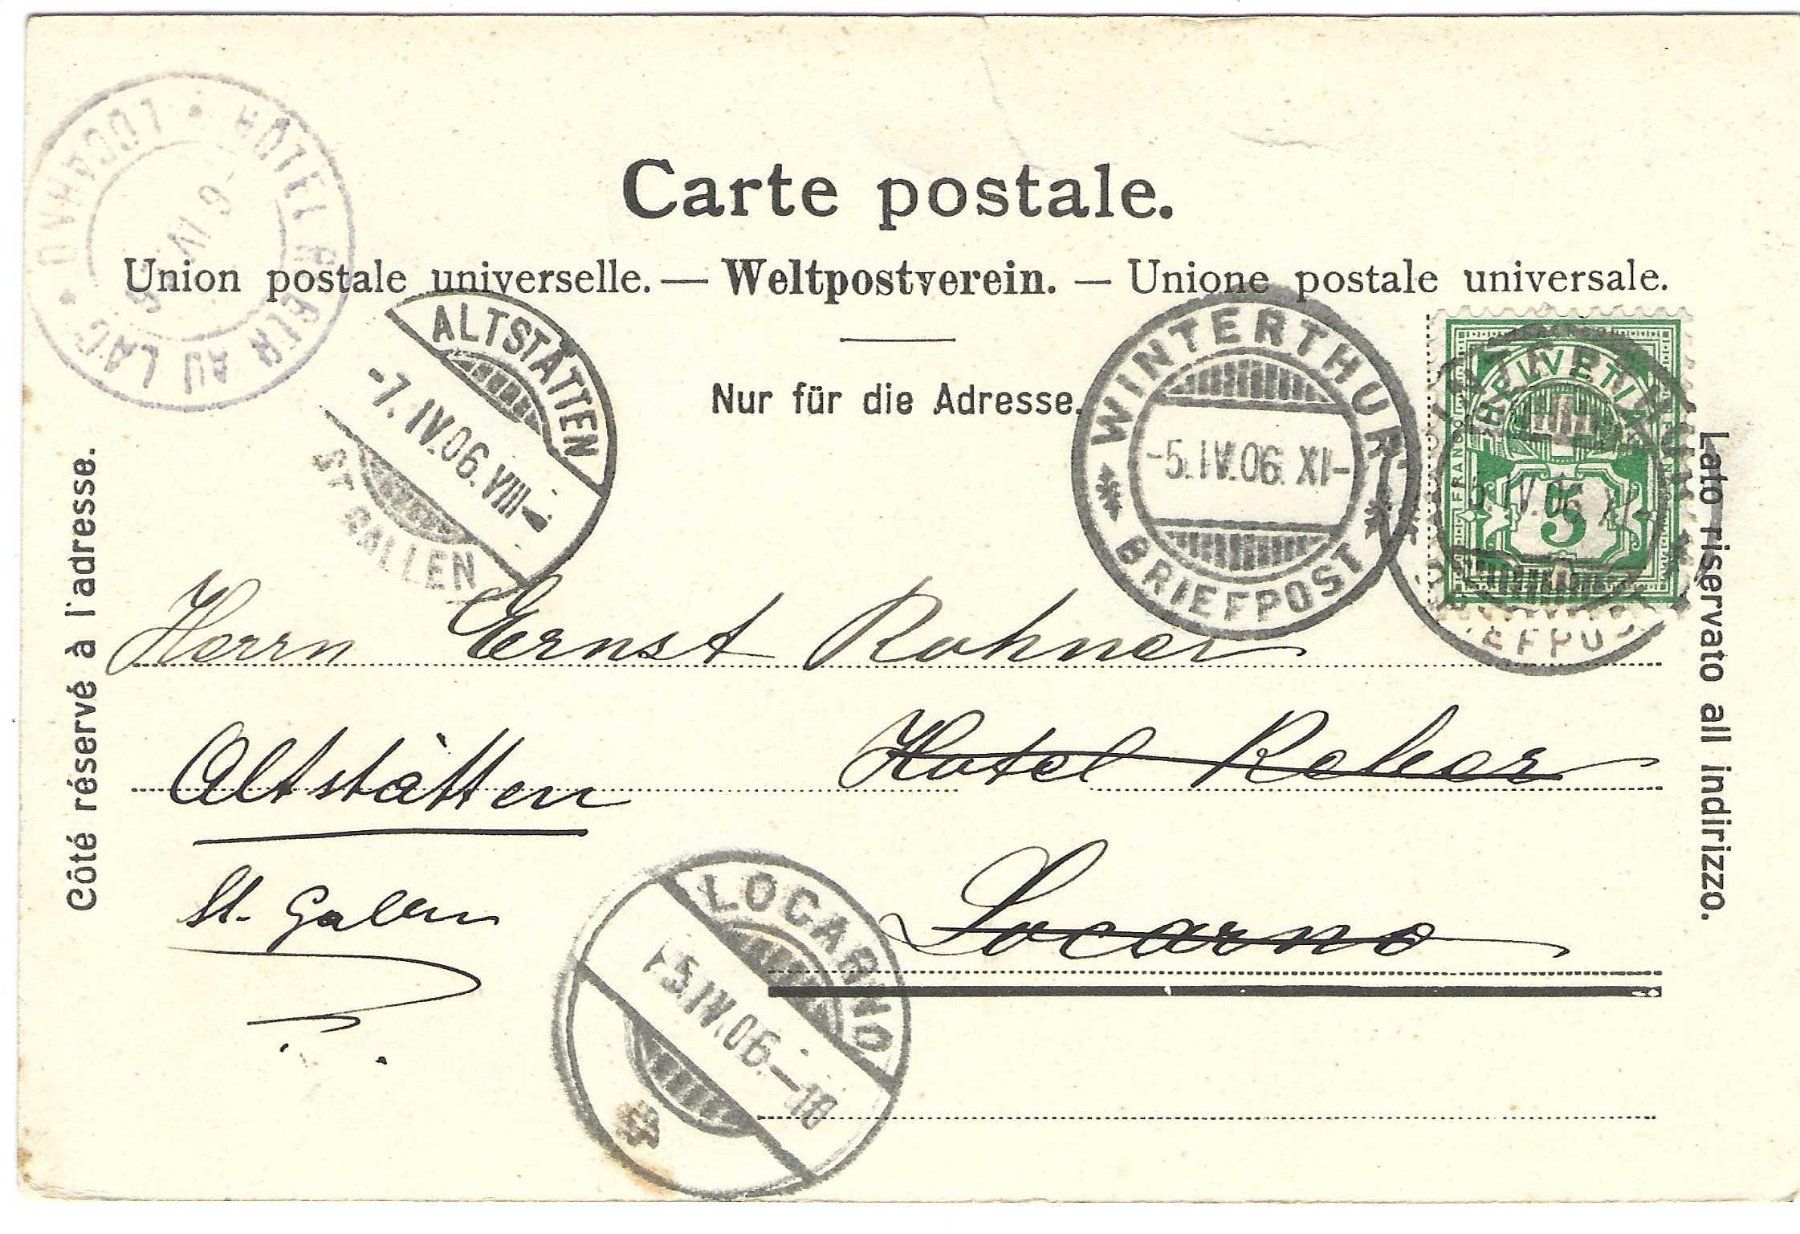 Carte postale.
Union postale universelle. — Weltpostverein. — Unione postale universale.
Nur für die Adresse.
Côté réservé à l'adresse.
Lato riservato all indirizzo.
HÔTEL REBER AU LAC * LOCARNO *
ALTSTÄTTEN
-7.IV.06.VIII-
ST GALLEN
WINTERTHUR
-5.IV.06.XI-
BRIEFPOST
HELVETIA
FRANCO
5
WINTERTHUR
5.IV.06.XI
BRIEFPOST
Herrn Ernst Rohner
Hotel Reber
Locarno
Altstätten
St. Gallen
LOCARNO
-5.IV.06.-10